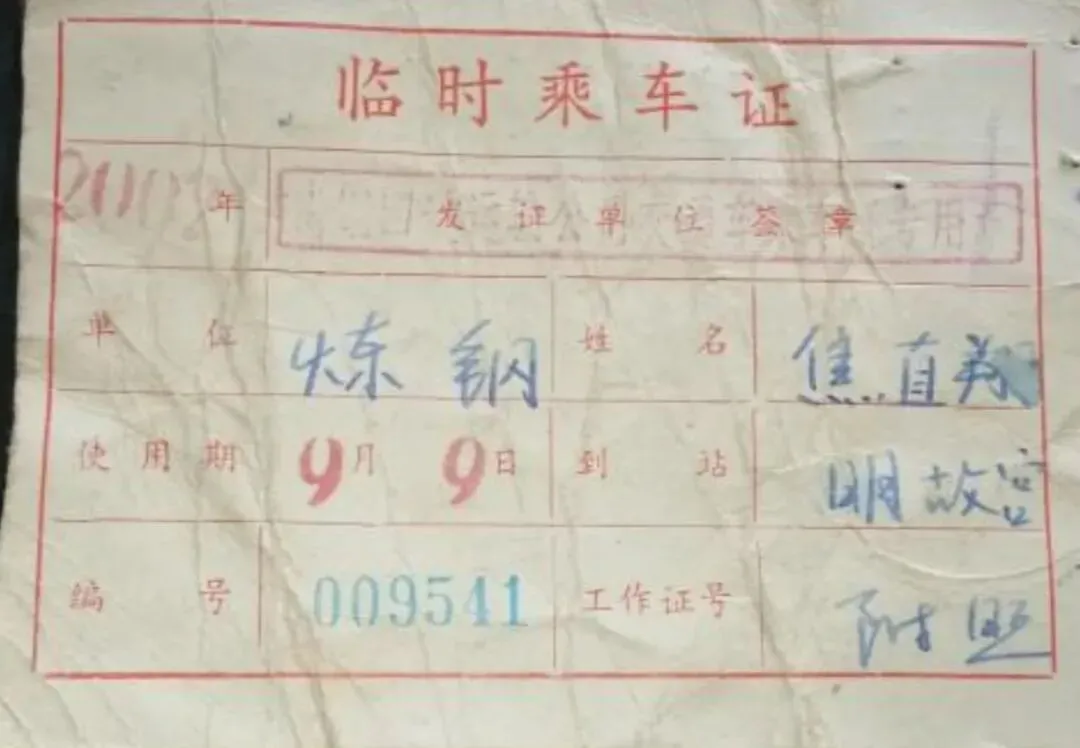 临时乘车证
年 发证单位签章
单位 炼钢 姓名 焦直翔
使用期 9月9日 到站 明故宫
编号 009541 工作证号 附照